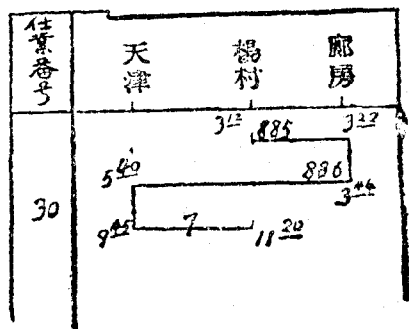 仕業番号 天津 楊村 廊房
3 12 885 3 22
5 40 886 3 46
30
9 45 7 11 20